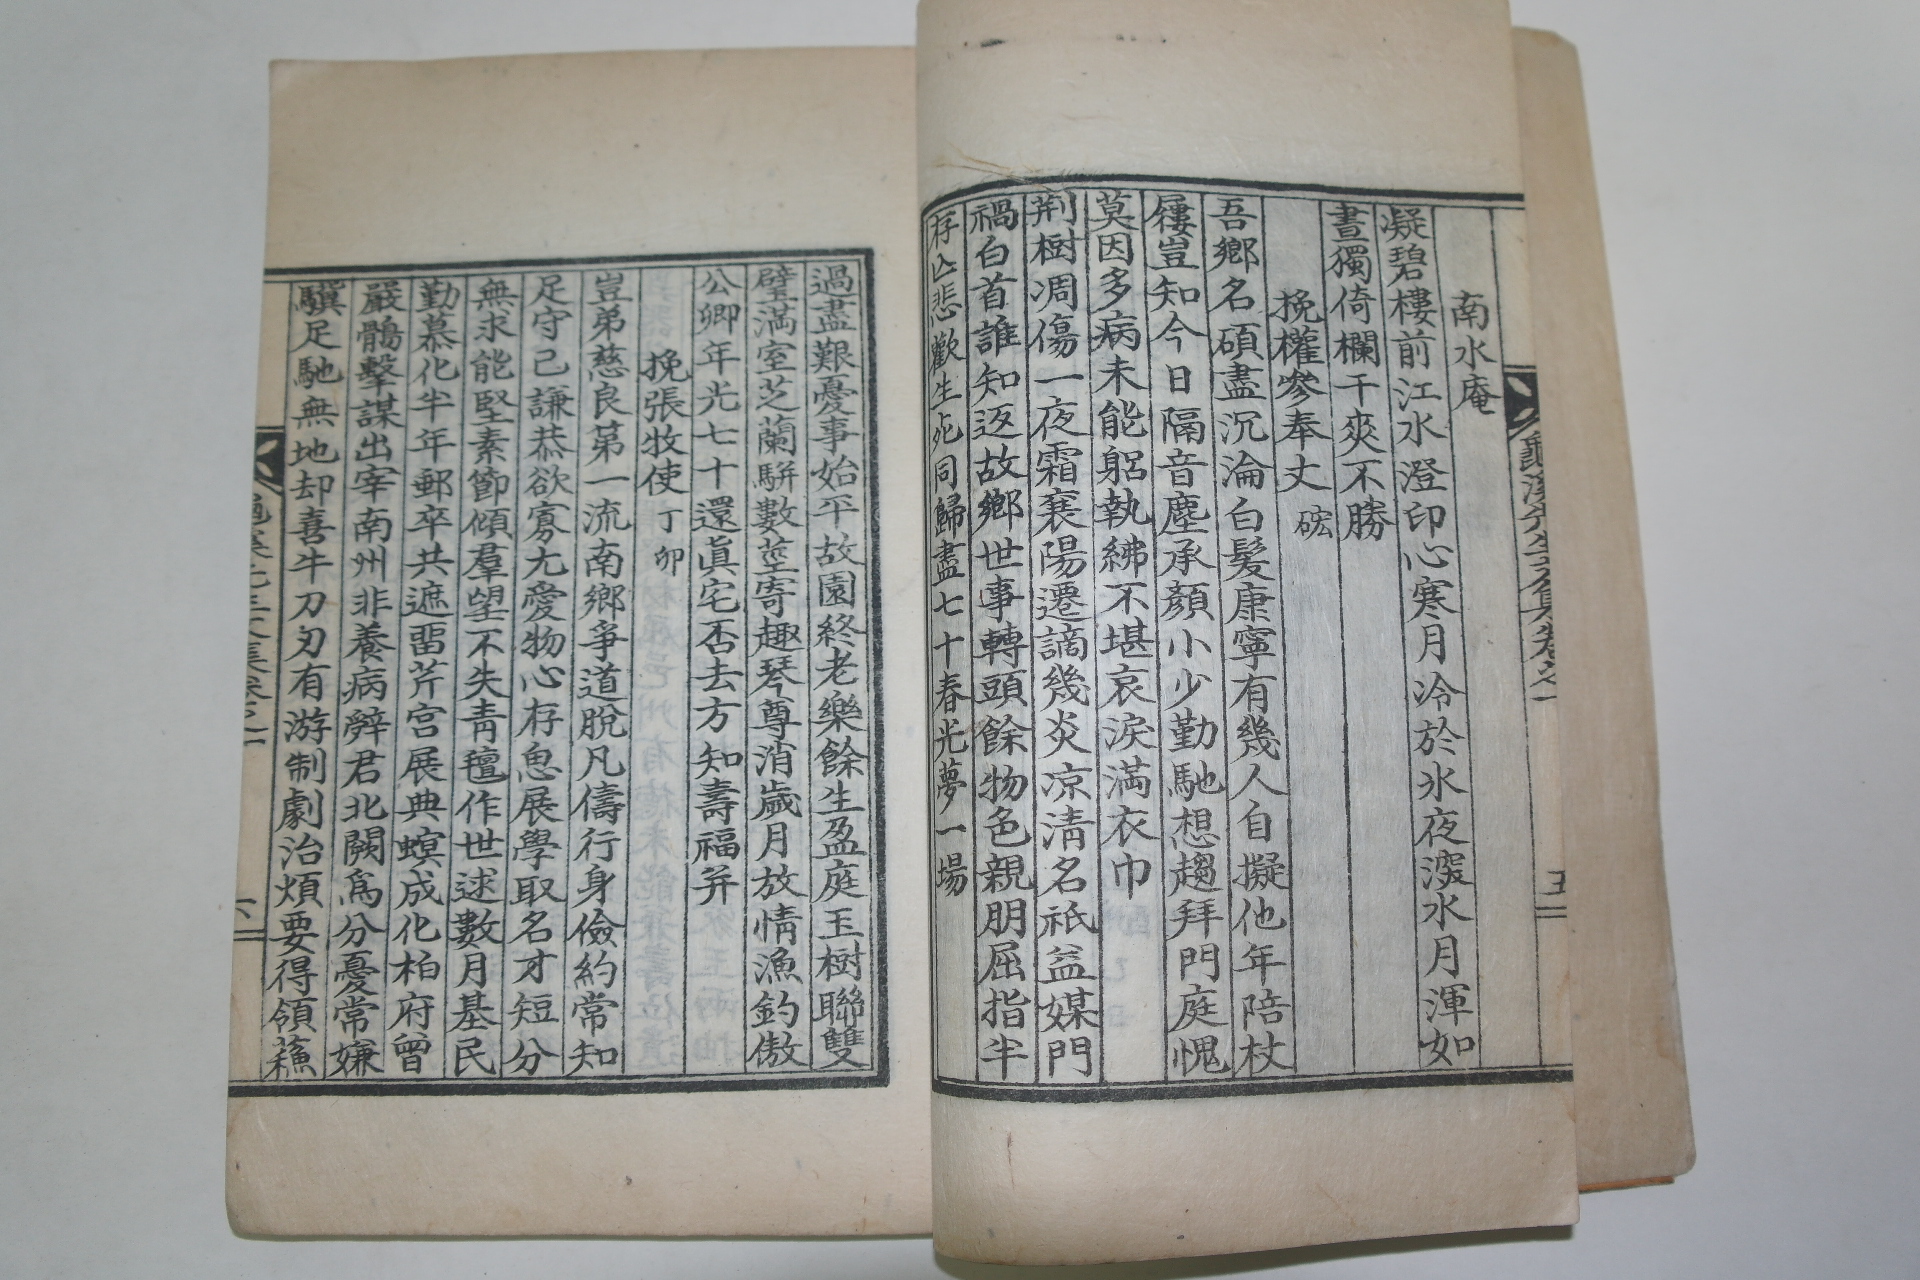 南水庵
凝碧樓前江水澄印心寒月冷於氷夜深水月渾如
晝獨倚欄干爽不勝
挽權參奉丈 硡
吾鄉名碩盡沉淪白髮康寧有幾人自擬他年陪杖
屨豈知今日隔音塵承顏小少勤馳想趨拜門庭愧
莫因多病未能躬執紼不堪哀淚滿衣巾
荊樹凋傷一夜霜襄陽遷謫幾炎凉淸名祇益媒門
禍白首誰知返故鄉世事轉頭餘物色親朋屈指半
存亡悲歡生死同歸盡七十春光夢一場
先生文集卷之一
五
過盡艱憂事始平故園終老樂餘生盈庭玉樹聯雙
璧滿室芝蘭騈數莖寄趣琴尊消歲月放情漁釣傲
公卿年光七十還眞宅否去方知壽福幷
挽張牧使 丁卯
豈弟慈良第一流南鄉爭道脫凡儔行身儉約常知
足守己謙恭欲寡尤愛物心存思展學取名才短分
無求能堅素節傾羣望不失靑氈作世逑數月基民
勤慕化半年郵卒共遮畱芹宮展典螟成化柏府曾
嚴鶻擊謀出宰南州非養病辭君北闕爲分憂常嫌
驥足馳無地却喜牛刀刃有游制劇治煩要得領蘓
六